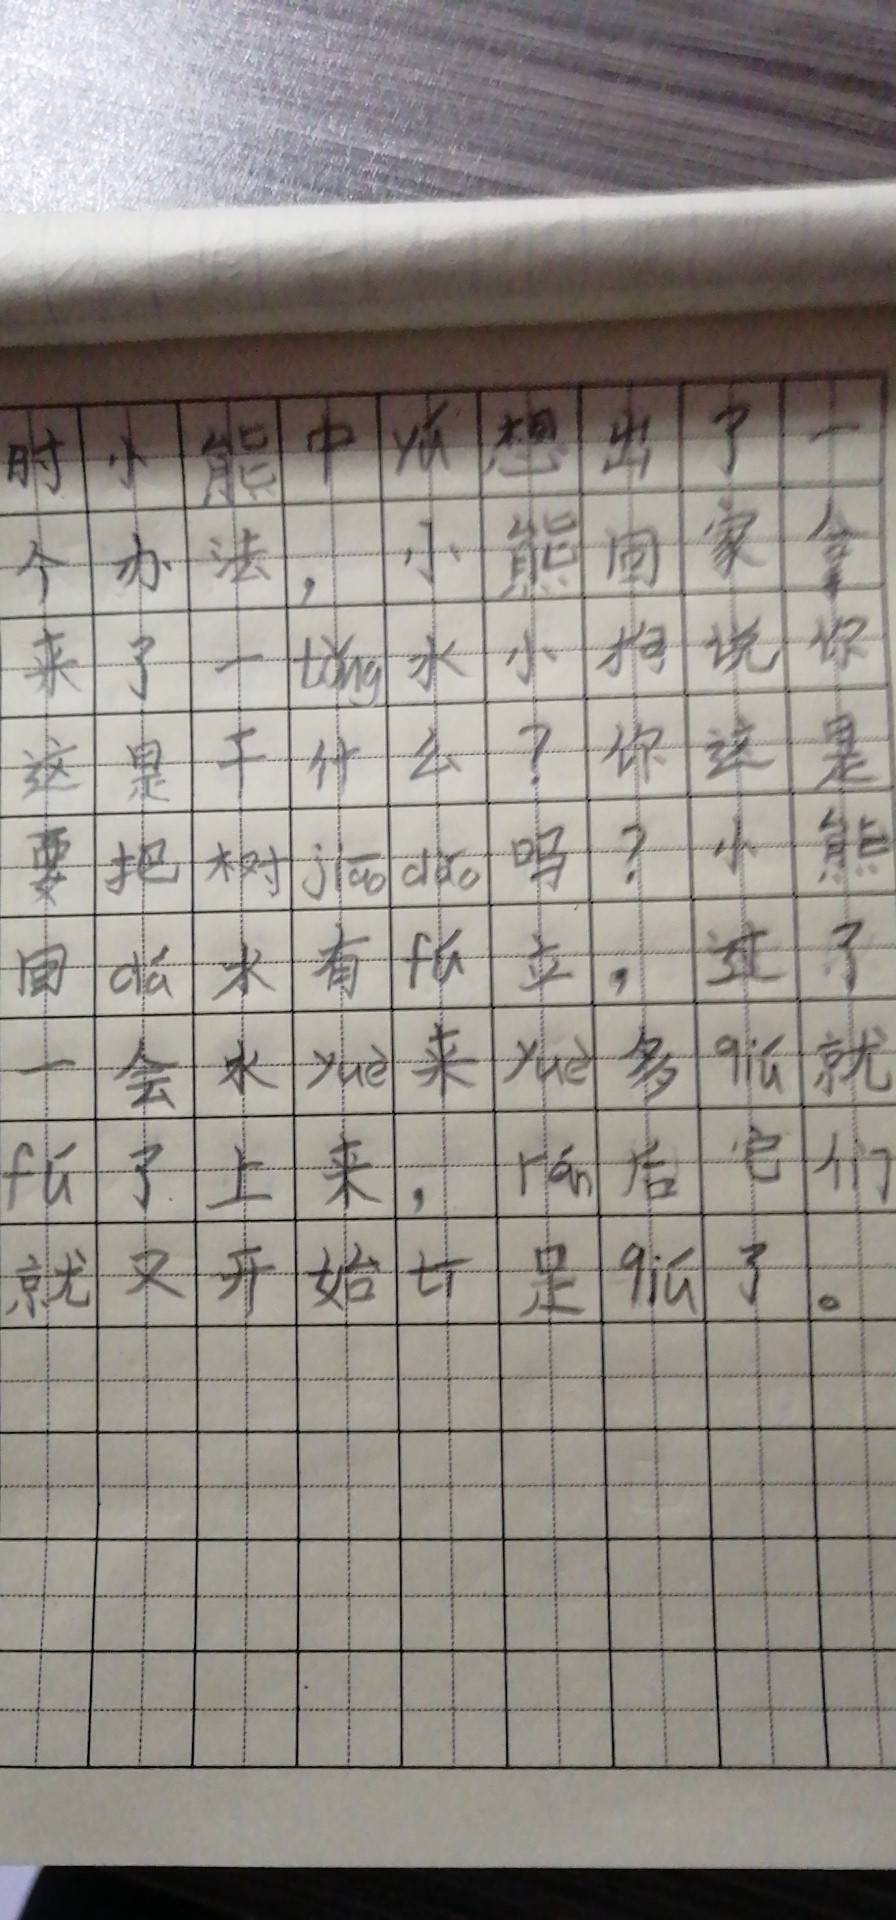 时小熊中yú想出了一
个办法，小熊回家拿
来了一tǒng水小狗说你
这是干什么？你这是
要把树jiāo dǎo吗？小熊
回dá水有fú立，过了
一会水yuè来yuè多qiú就
fú了上来，rán后它们
就又开始足qiú了。